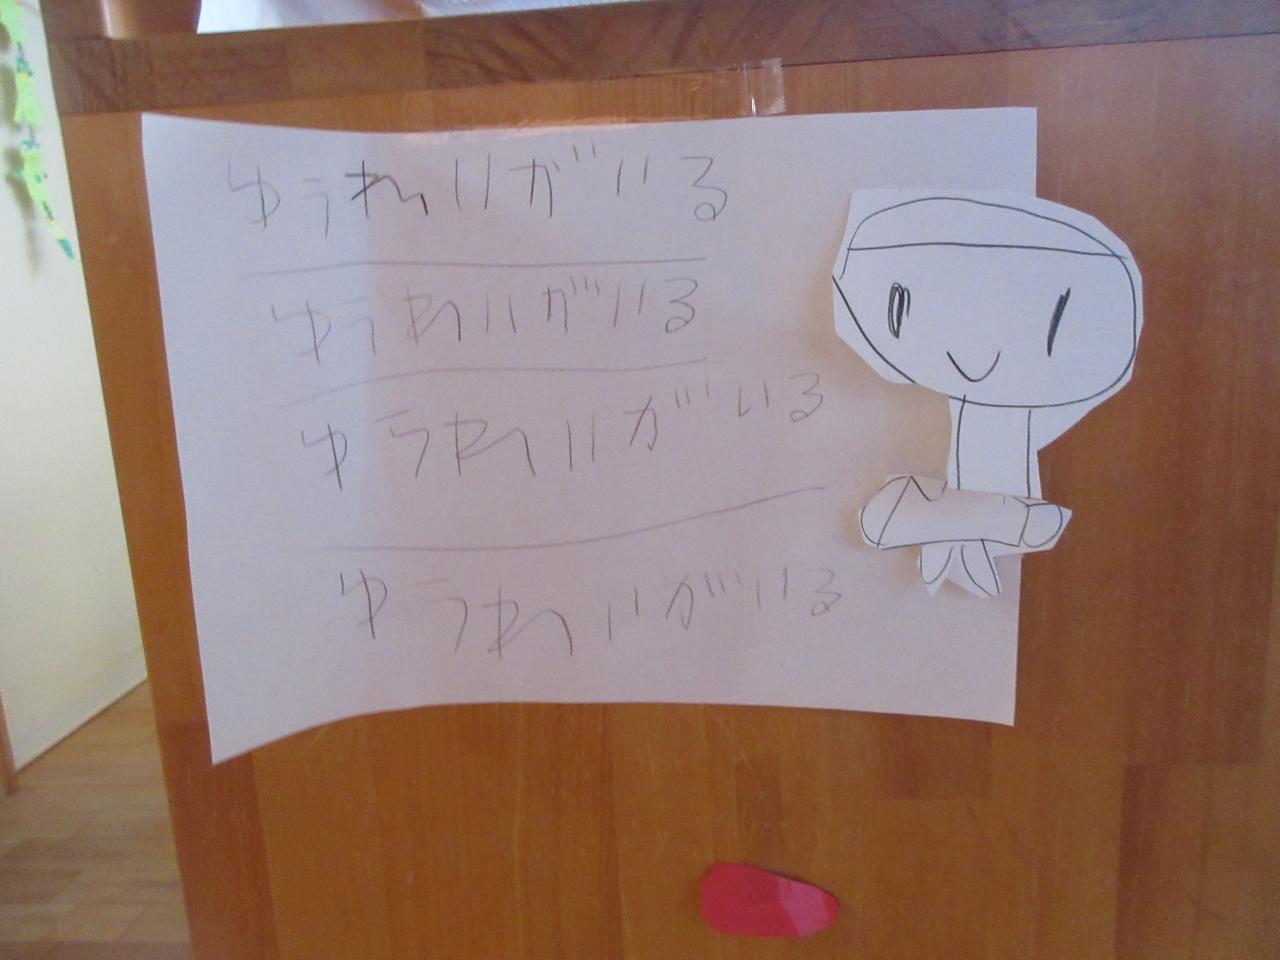 ゆうれいがいる
ゆうれいがいる
ゆうれいがいる
ゆうれいがいる